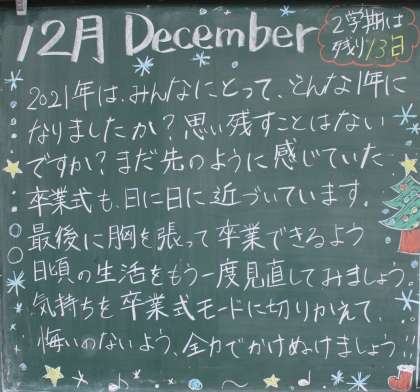 12月 December
2学期は
残り13日
2021年は、みんなにとって、どんな1年に
なりましたか?思い残すことはない
ですか?まだ先のように感じていた
卒業式も、日に日に近づいています。
最後に胸を張って卒業できるよう
日頃の生活をもう一度見直してみましょう。
気持ちを卒業式モードに切りかえて、
悔いのないよう、全力でかけぬけましょう。